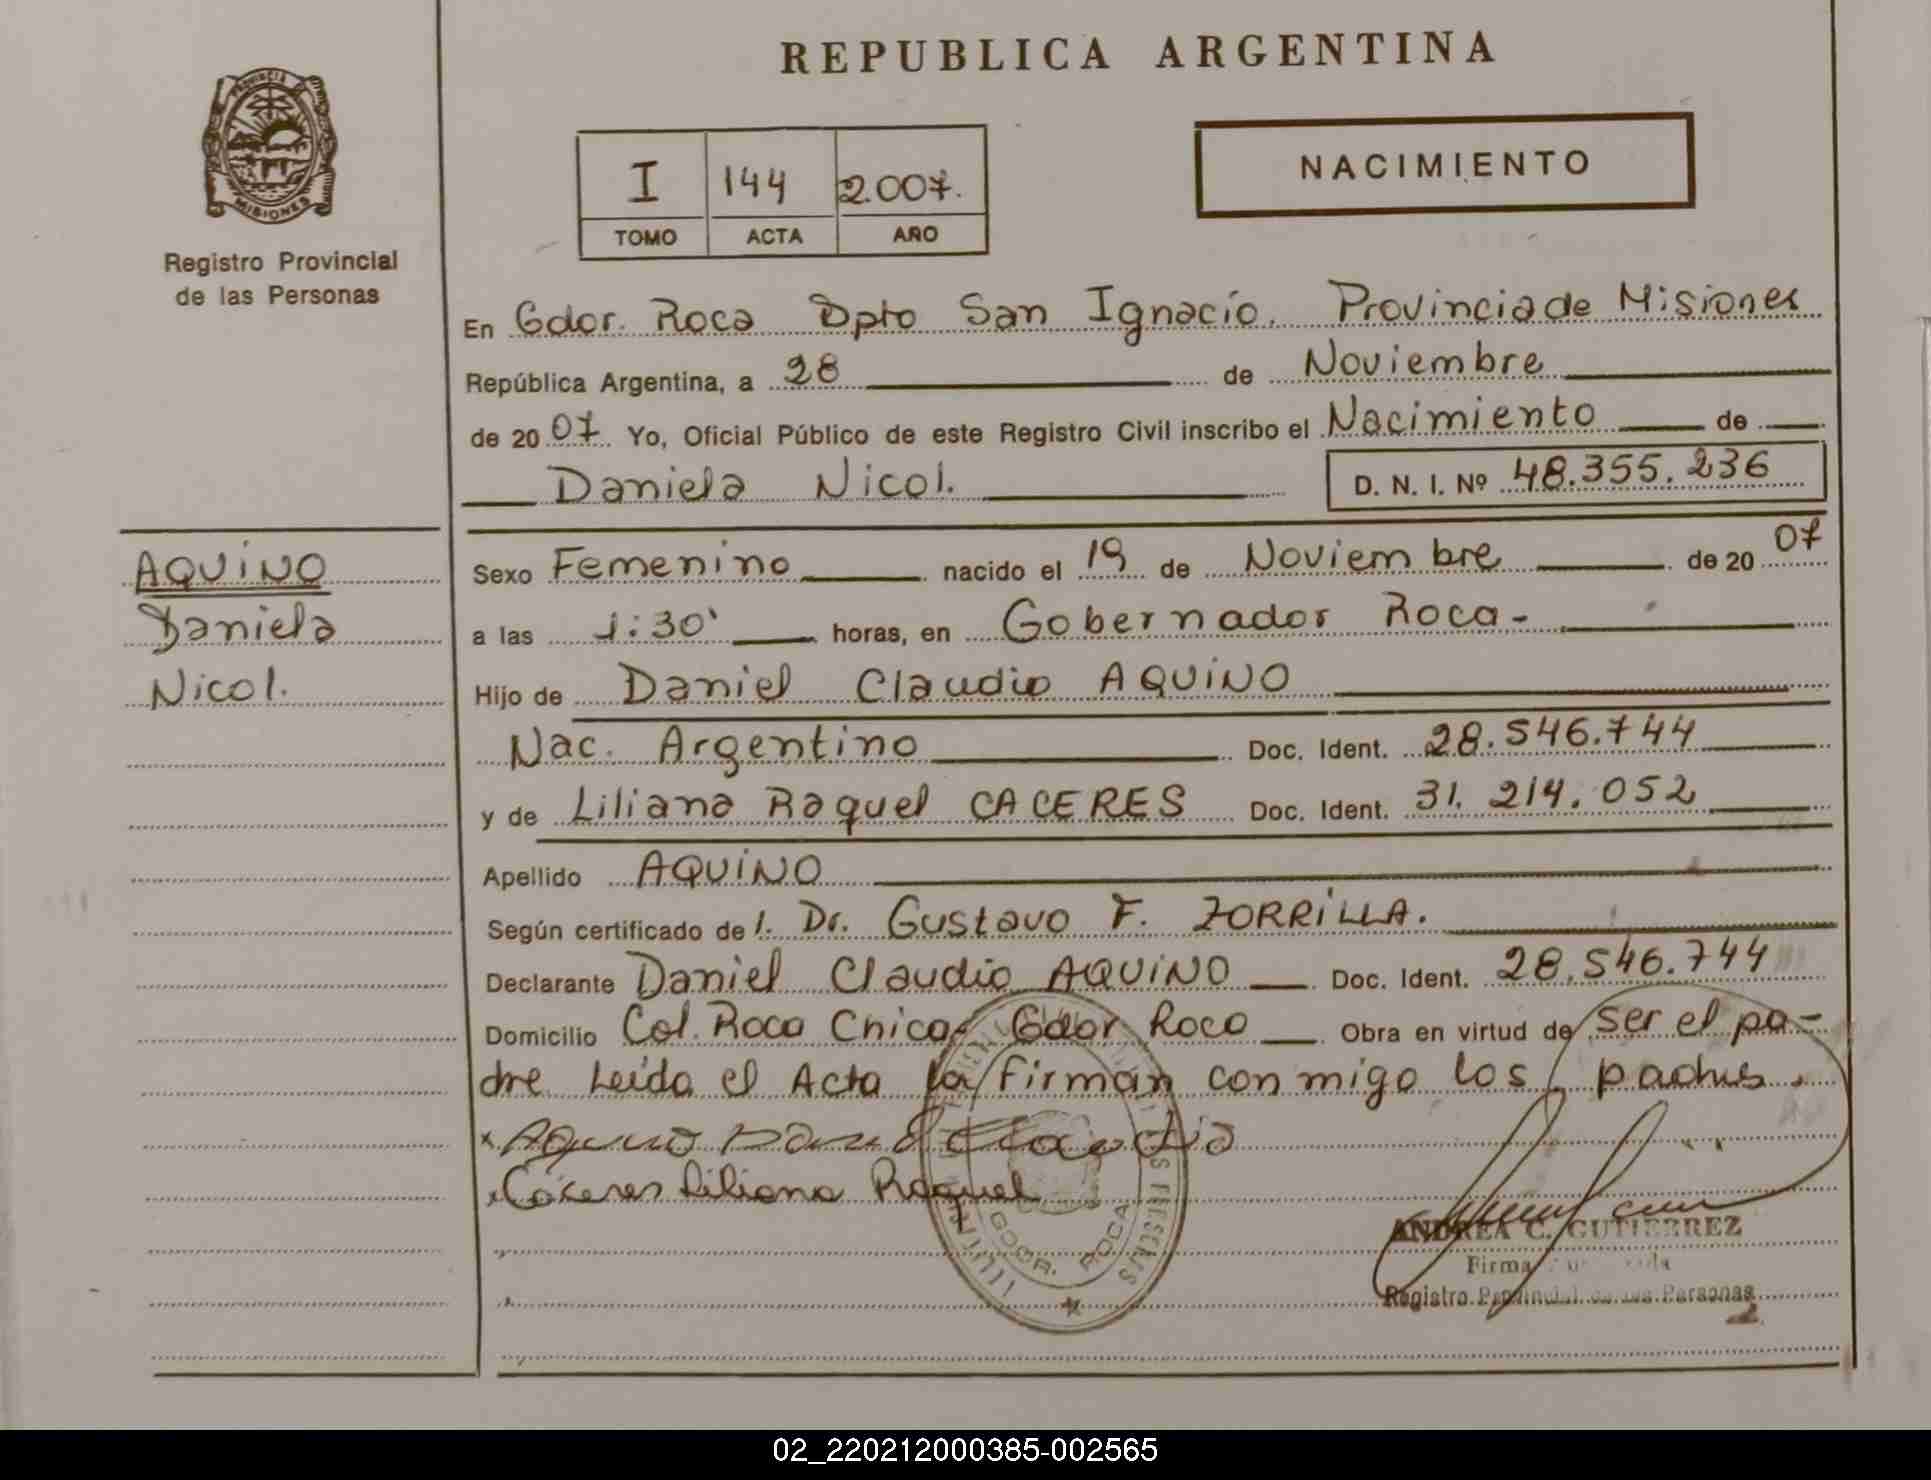 REPUBLICA ARGENTINA
PROVINCIA
MISIONES
Registro Provincial
de las Personas
I 144 2.007.
TOMO ACTA AÑO
NACIMIENTO
En Gdor. Roca Dpto San Ignacio. Provincia de Misiones
República Argentina, a 28 de Noviembre
de 20 07 Yo, Oficial Público de este Registro Civil inscribo el Nacimiento de
Daniela Nicol. D. N. I. Nº 48.355.236
AQUINO
Daniela
Nicol.
Sexo Femenino nacido el 19 de Noviembre de 20 07
a las 1:30' horas, en Gobernador Roca-
Hijo de Daniel Claudio AQUINO
Nac. Argentino Doc. Ident. 28.546.744
y de Liliana Raquel CACERES Doc. Ident. 31.214.052
Apellido AQUINO
Según certificado de l. Dr. Gustavo F. ZORRILLA.
Declarante Daniel Claudio AQUINO Doc. Ident. 28.546.744
Domicilio Col. Roca Chica- Gdor Roca Obra en virtud de ser el pa-
dre Leída el Acta la firman conmigo los padres.
x Aquino Daniel Claudio
x Cáceres Liliana Raquel
GDOR. ROCA
ANDREA C. GUTIERREZ
Firma
Registro Provincial de las Personas
02_220212000385-002565